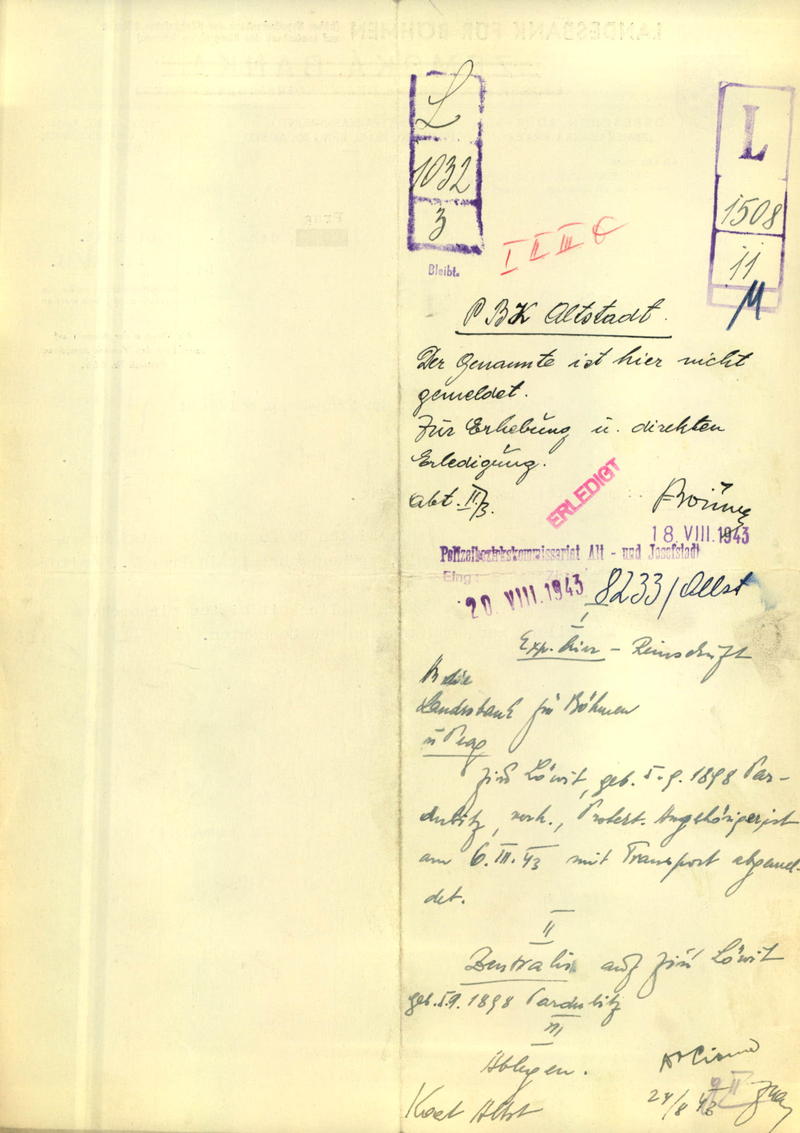 LANDESBANK FÜR BÖHMEN
Prag
L
1032
3
Bleibt.
L
1508
11
I II III
P B K Altstadt.
Der Genannte ist hier nicht
gemeldet.
Für Erhebung u. direkten
Erledigung.
Abt. II/3.
ERLEDIGT
18. VIII. 1943
Polizeibezirkskommissariat Alt - und Josefstadt
Eing.
20. VIII. 1943
8233/Altst
I
Exp. hier – Reinschrift
An die
Landesbank für Böhmen
in Prag
Jiří Löwit, geb. 5.9.1898 Par-
dubitz, verh., Protekt. Angehöriger, ist
am 6. III. 43 mit Transport abgemel-
det.
II
Zentralis auf Jiří Löwit
geb. 5.9.1898 Pardubitz
III
Ablegen.
Koat Altst
24/8 43